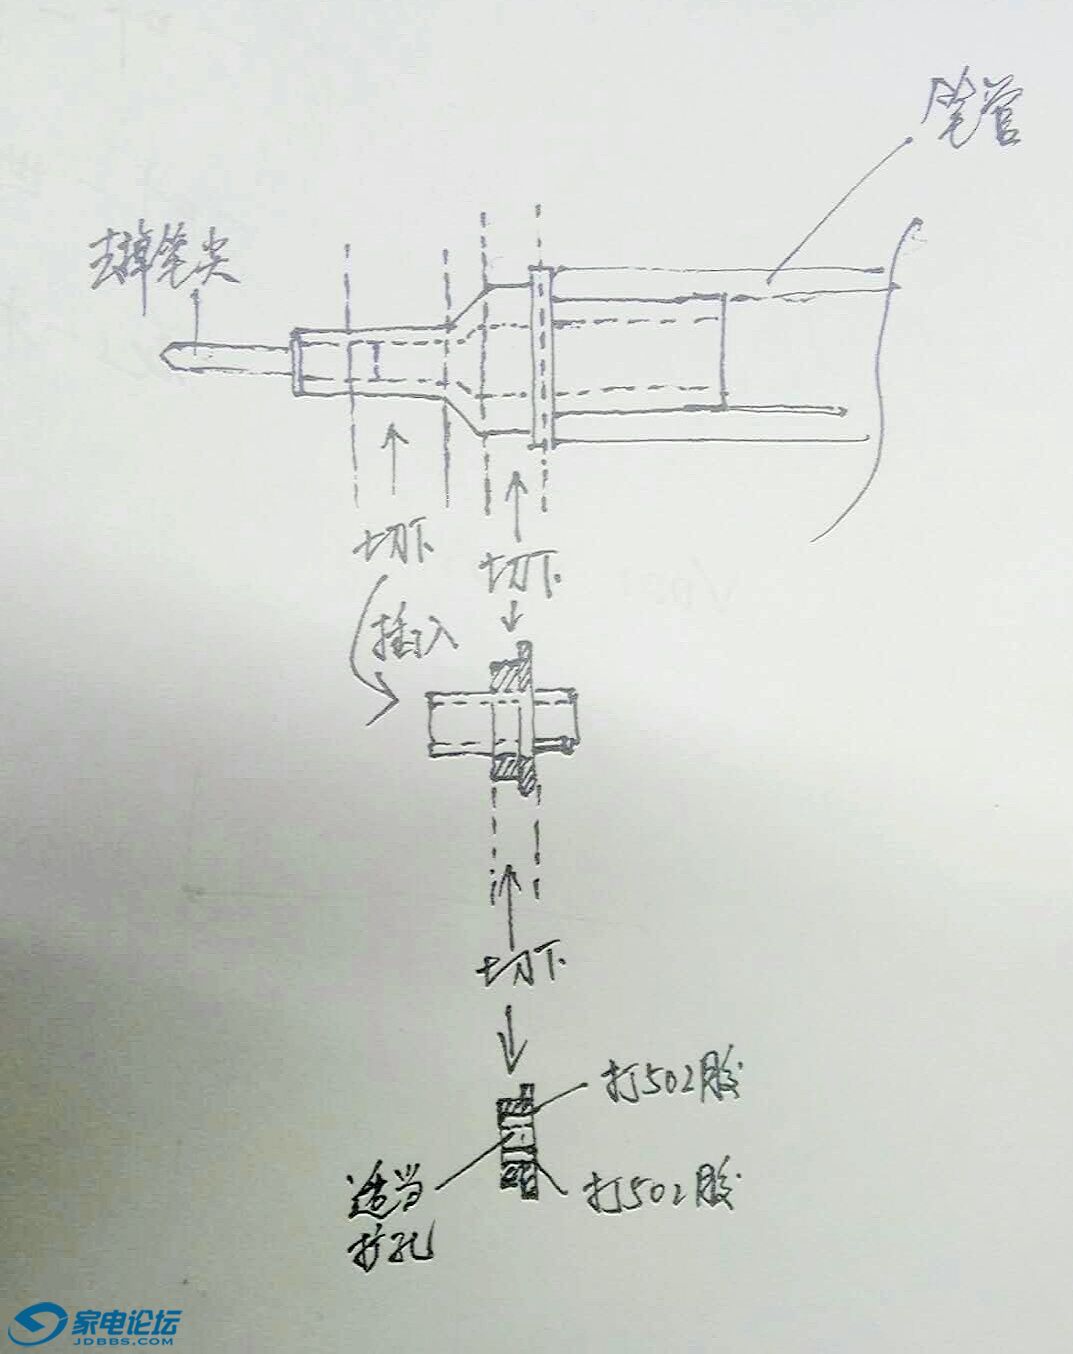 笔管
去掉笔尖
切下
切下
插入
切下
打502胶
适当
扩孔
打502胶
家电论坛
JDBBS.COM